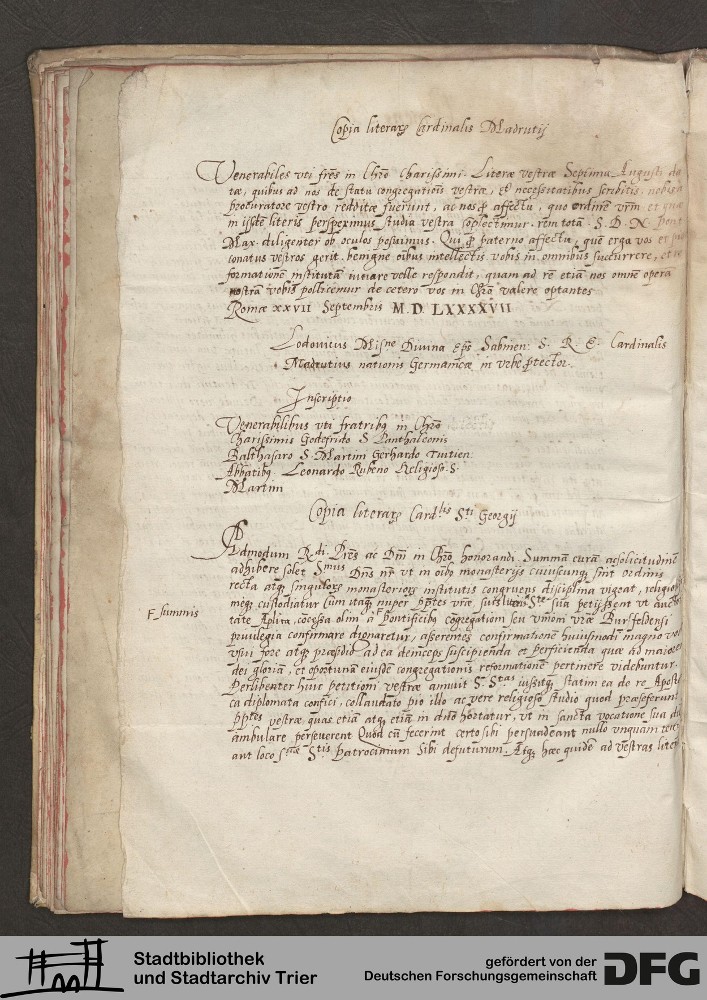 Copia literarꝝ Cardinalis Madrutij
Venerabiles uti frēs in Chrō Charissimi. Literæ vestræ Septima Augusti da
tæ, quibus ad nos de statu congregationis vestræ, et necessitatibus scribitis, nobis à
procuratore vestro redditæ fuerunt, ac nos ꝓ affectu, quo ordinē vrm̄ et quæ
in ijsdē literis perspeximus studia vestra cōplectimur. rem totā S. D. N. Pont
Max. diligenter ob oculos posuimus. Qui ꝓ paterno affectu, quē erga vos et
conatus vestros gerit. benigne oībus intellectis vobis in omnibus succurrere, et re
formationē institutā iuvare velle respondit, quam ad rē etiā nos omnē operā
nostrā vobis pollicemur de cetero vos in Chrō valere optantes
Romæ XXVII Septembris M.D.LXXXXVII
Lodovicus Misne Divina Eps Sabinen: S. R. E. Cardinalis
Madrutius nationis Germanicæ in urbe ꝓtector.
Inscriptio
Venerabilibus uti fratribꝫ in Chrō
Charissimis Godefrido S Panthaleonis
Balthasaro S. Martini Gerhardo Tuitien
Abbatibꝫ Leonardo Rubeno Religioso S.
Martini
Copia literarꝝ Cardlis Sti Georgij
Admodum Rdi Pres ac Dni in Chrō honorandi. Summā curā ac solicitudinē
adhibere solet Smus Dns nr̄ ut in oībꝫ monasterijs cuiuscunqꝫ sint ordinis
recta atqꝫ singulorꝝ monasteriorꝝ institutis congruens disciplina vigeat, religio
meqꝫ custodiatur Cum itaqꝫ nuper ꝓptes vræ Ste sua petijssent ut auc
F summis
tate Aplica, cōcessa olim à Pontificibꝫ cōgregationi seu unioni vræ Bursfeldensi
privilegia confirmare dignaretur, assererent confirmationē huiusmodi magno vob
usui fore atqꝫ præsidio ad ea deinceps suscipienda et perficienda quæ ad maiorē
dei gloriā, et oportunā eiusdē congregationis reformationē pertinere videbuntur.
Perlibenter huic petitioni vestræ annuit Sa Stas iussitqꝫ statim ea de re Apostoli
ca diplomata confici, collaudato pio illo ac vere religioso studio quod præseferunt
ꝓptes vestræ quas etiā atqꝫ etiā in dnō hortatur, ut in sancta vocatione sua
ambulare perseverent Quod cū fecerint certo sibi persuadeant nullo unquam tem
ant loco Stis Patrocinium sibi defuturum. Atqꝫ hæc quidē ad vestras liter
Stadtbibliothek
und Stadtarchiv Trier
gefördert von der
Deutschen Forschungsgemeinschaft
DFG